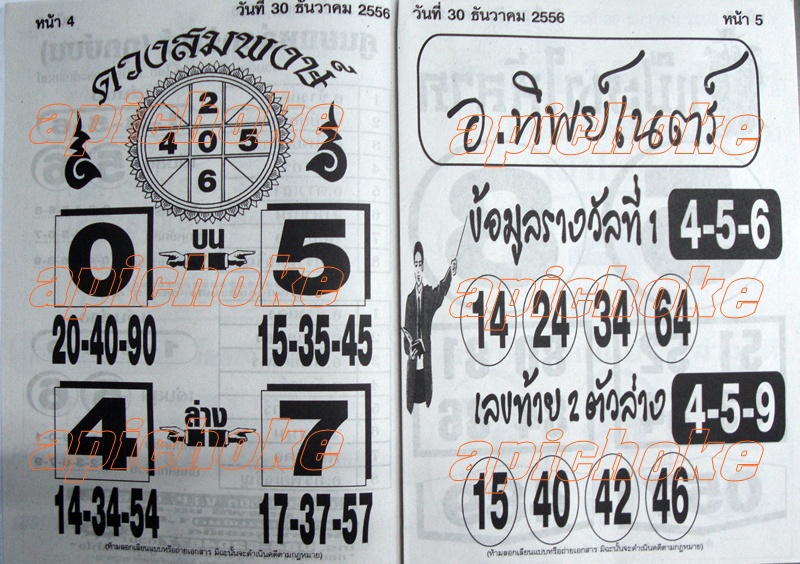 หน้า 4
วันที่ 30 ธันวาคม 2556
ดวงสมพงษ์
2
4 0 5
6
0 บน 5
20-40-90 15-35-45
4 ล่าง 7
14-34-54 17-37-57
(ห้ามลอกเลียนแบบหรือถ่ายเอกสาร มิฉะนั้นจะดำเนินคดีตามกฎหมาย)
วันที่ 30 ธันวาคม 2556
หน้า 5
อ.ทิพย์เนตร์
ข้อมูลรางวัลที่ 1 4-5-6
14 24 34 64
เลขท้าย 2 ตัวล่าง 4-5-9
15 40 42 46
(ห้ามลอกเลียนแบบหรือถ่ายเอกสาร มิฉะนั้นจะดำเนินคดีตามกฎหมาย)
apichoke apichoke
apichoke apichoke
apichoke apichoke
apichoke apichoke